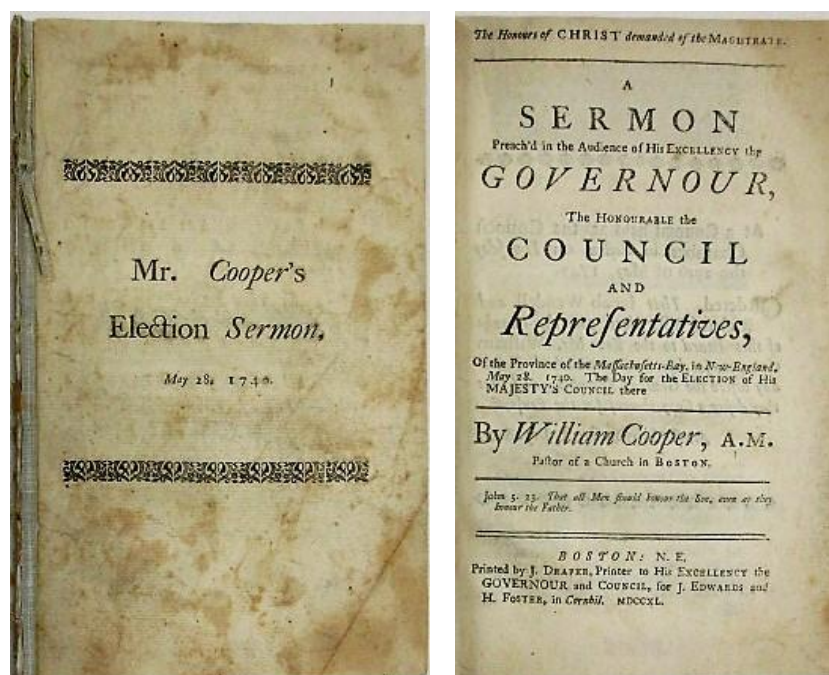 Mr. Cooper's
Election Sermon,
May 28, 1740.
The Honours of CHRIST demanded of the MAGISTRATE.
A
SERMON
Preach'd in the Audience of His EXCELLENCY the
GOVERNOUR,
The HONOURABLE the
COUNCIL
AND
Repreſentatives,
Of the Province of the Maſſachuſetts-Bay, in New-England,
May 28. 1740. The Day for the ELECTION of His
MAJESTY'S COUNCIL there
By William Cooper, A.M.
Paſtor of a Church in BOSTON.
John 5. 23. That all Men ſhould honour the Son, even as they
honour the Father.
BOSTON: N. E.
Printed by J. DRAPER, Printer to His EXCELLENCY the
GOVERNOUR and COUNCIL, for J. EDWARDS and
H. FOSTER, in Cornhil. MDCCXL.